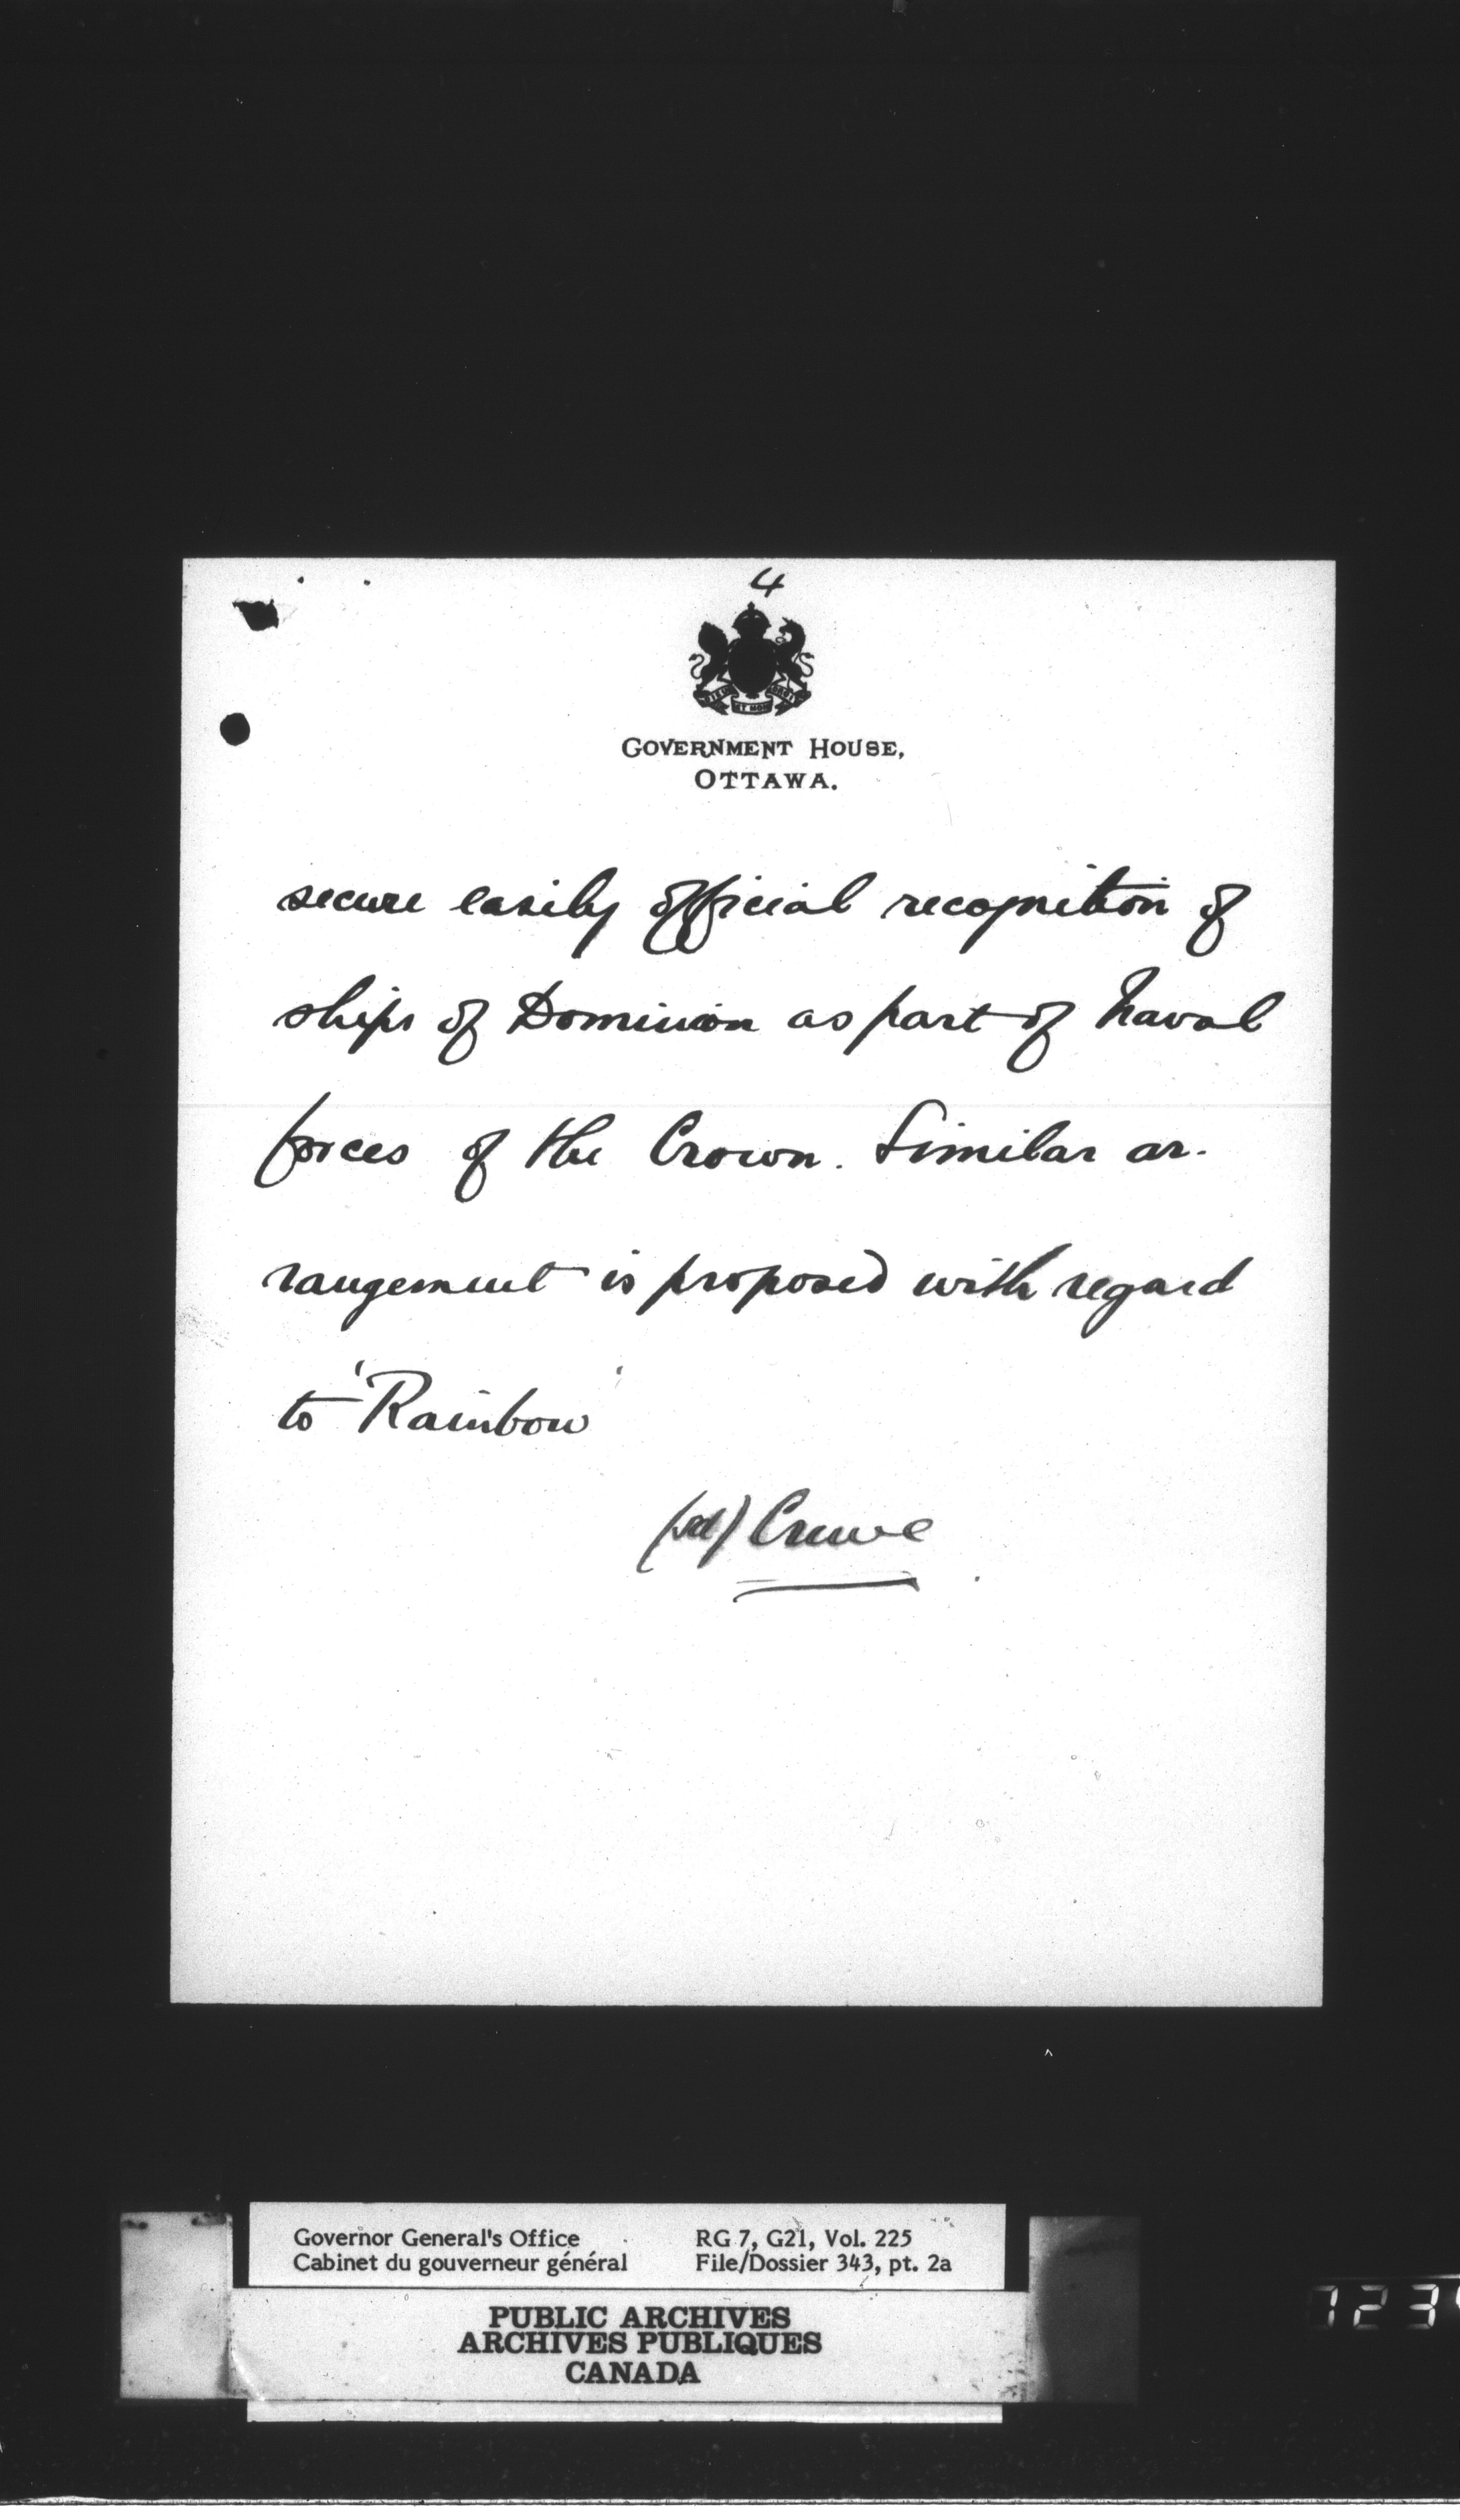 4
DIEU ET MON DROIT
GOVERNMENT HOUSE,
OTTAWA.
secure easily official recognition of
ships of Dominion as part of Naval
forces of the Crown. Similar ar-
rangement is proposed with regard
to 'Rainbow'
(sd) Crewe
Governor General's Office RG 7, G21, Vol. 225
Cabinet du gouverneur général File/Dossier 343, pt. 2a
PUBLIC ARCHIVES
ARCHIVES PUBLIQUES
CANADA